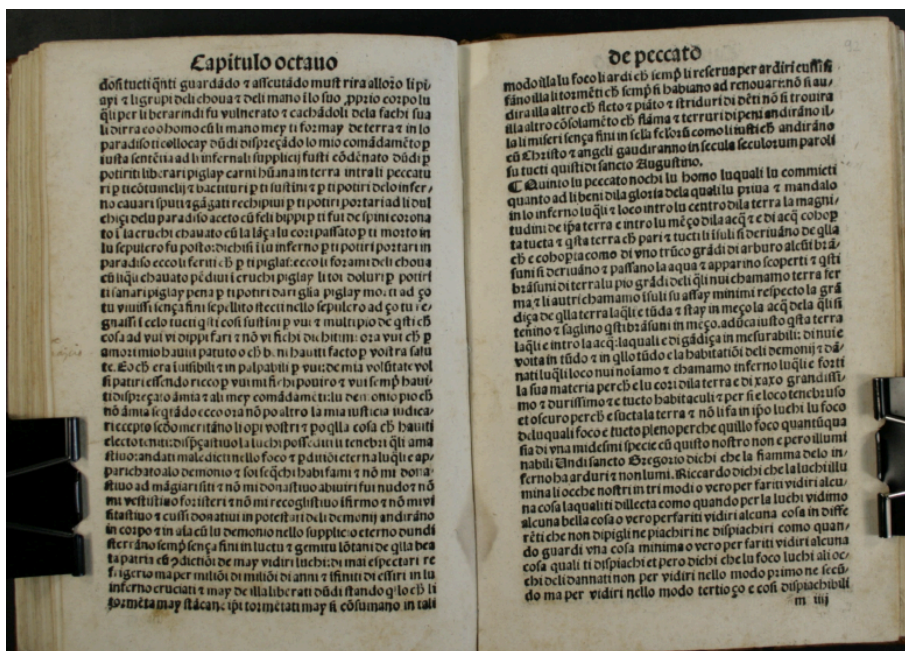 Capitulo octauo
dosi tucti q̄nti guardādo ⁊ ascutādo
ayi ⁊ li grupi deli choua ⁊ deli mano ilo suo ,pprio corpo lu
q̄li per liberarindi fu vulnerato ⁊ cachādoli dela fachi sua
li dirra eco homo cū li mano mey ti formay de terra ⁊ in lo
paradiso ti collocay dūdi dispreçādo lo mio comādamēto p
iusta sentētia ad li infernali supplicij fusti cōdēnato dūdi p
potiriti liberari piglay carni hūana in terra intra li peccatu
ri p ti cōtuinelij ⁊ bactituri p ti sustini ⁊ p ti potiri delo infer-
no cauari sputi ⁊ gāgati rechipiui p ti potiri portari ad li dul
chiçi delu paradiso aceto cū feli bippi p ti fui de spini corona
to ī la cruchi chauato cū la lāça lu cori passato p ti morto in
lu sepulcro fu posto: dichisi ī lu inferno p ti potiri portari in
paradiso ecco li feriti ch̄ p ti piglai: ecco li forami deli choua
cū liq̄li chauato pēdiui ī cruchi piglay li toi doluri p potiri
ti sanari piglay pena p ti potiri dari glia piglay morti ad ço
tu viuissi sença fini sepellito stecti nello sepulcro ad ço tu re-
gnassi ī celo tucti q̄sti cosi sustini p vui ⁊ multi pio de q̄sti ch̄
cosa ad vui vi dippi fari ⁊ nō vi fichi dichitimi: ora vui ch̄ p
amori mio hauiti patuto o ch̄ beni hauiti facto p vostra salu
te. Eo ch̄ era īuisibili ⁊ in palpabili p vui: de mia volūtate vol
si patiri essendo ricco p vui mi fichi pouiro ⁊ vui semp̄ haui-
ti dispreçato āmia ⁊ ali mey comādamēti: lu demonio pio ch̄
nō āmia seq̄tādo ecco ora nō po altro la mia iusticia iudica-
ri eccepto scdo meritāno li opi vostri ⁊ po q̄lla cosa ch̄ hauiti
electo teniti: dispçastiuo la luchi possediti li tenebri q̄li ama
stiuo: andati maledicti nello foco ⁊ pditiōi eterna luq̄li e ap-
parichato alo demonio ⁊ soi seq̄chi habi fami ⁊ nō mi dona-
stiuo ad māgiari siti ⁊ nō mi donastiuo abiuiri fui nudo ⁊ nō
mi vestistiuo foristeri ⁊ nō mi recoglistiuo ifirmo ⁊ nō mi vi
sitastiuo ⁊ cussi donatiui in potestati deli demonij andirāno
in corpo ⁊ in aīa cū lu demonio nello supplicio eterno dundi
sterrāno semp̄ sença fini in luctu ⁊ gemitu lōtani de q̄lla bea
ta patria cū ꝯdictiōi de may vidiri luchi: di mai espectari re
frigerio ma per miliōi di miliōi di anni ⁊ īfiniti di essiri in lu
inferno cruciati ⁊ may de illa liberati dūdi stando q̄lo ch̄ li
tormēta may stācanc: ip̄i tormētati may si cōsumano in tali
de peccato
92
modo illa lu foco li ardi ch̄ semp̄ li reserua per ardiri cussi si
fāno illa li tormēti ch̄ semp̄ si habiano ad renouari: nō si au-
dira illa altro ch̄ fleto ⁊ piāto ⁊ striduri di dēti nō si trouira
illa altro cōsolamēto ch̄ flāma ⁊ terruri di peni andirāno il-
la li miseri sença fini in sella felorū como li iusti ch̄ andirāno
cū Christo ⁊ angeli gaudiranno in secula seculorum paroli
su tucti quisti di sancto Augustino.
¶ Quinto lu peccato nochi lu homo luquali lu commicti
quanto ad li beni dila gloria dela quali lu priua ⁊ mandalo
in lo inferno luq̄li e loco intro lu centro dila terra la magni-
tudini de ip̄a terra e intro lu mēço dila acq̄ ⁊ e di acq̄ cohop
ta tucta ⁊ q̄sta terra ch̄ pari ⁊ tucti li isuli si deriuāno de q̄lla
ch̄ e cohopta como di vno trūco grādi di arburo alcūi brā-
suni si deriuāno ⁊ passano la aqua ⁊ apparino scoperti ⁊ q̄sti
brāsuni di terra lu pio grādi deli q̄li nui chamamo terra fer
ma ⁊ li autri chamamo isuli su assay minimi respecto la grā
diça de q̄lla terra laq̄li e tūda ⁊ stay in meço la acq̄ dela q̄li si
tenino ⁊ saglino q̄sti brāsuni in meço. adūca iusto q̄sta terra
laq̄li e intro la acq̄: laquali e di gādiça in mesurabili: di nui e
voita in tūdo ⁊ in q̄llo tūdo e la habitatiōi deli demonij ⁊ dā-
nati luq̄li loco nui noīamo ⁊ chamamo inferno luq̄li e forti
la sua materia perch̄ e lu cori dila terra e di xaxo grandissi-
mo ⁊ durissimo ⁊ e tucto habitaculi ⁊ per si e loco tenebruso
et oscuro perch̄ e sucta la terra ⁊ nō li fa in ip̄o luchi lu foco
deluquali foco e tucto pleno perche quillo foco quantūqua
sia di vna midesmi specie cū quisto nostro non e pero illumi
nabili Undi sancto Gregorio dichi che la fiamma delo in-
ferno ha arduri ⁊ non lumi. Riccardo dichi che la luchi illu
mina li occhi nostri in tri modi o vero per fariti vidiri alcu-
na cosa laquali ti dillecta como quando per la luchi vidimo
alcuna bella cosa o vero per fariti vidiri alcuna cosa in diffe
rēti che non dipigli ne piachiri ne dispiachiri como quan-
do guardi vna cosa minima o vero per fariti vidiri alcuna
cosa quali ti dispiachi et pero dichi che lu foco luchi ali oc-
chi deli dannati non per vidiri nello modo primo ne secū-
do ma per vidiri nello modo tertio ço e cosi dispiachibili
m iiij